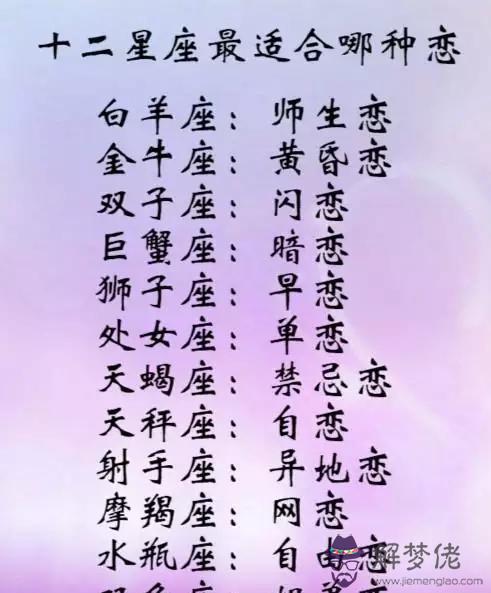 十二星座最适合哪种恋
白羊座：师生恋
金牛座：黄昏恋
双子座：闪恋
巨蟹座：暗恋
狮子座：早恋
处女座：单恋
天蝎座：禁忌恋
天秤座：自恋
射手座：异地恋
摩羯座：网恋
水瓶座：自由恋
解梦佬
www.jiemenglao.com